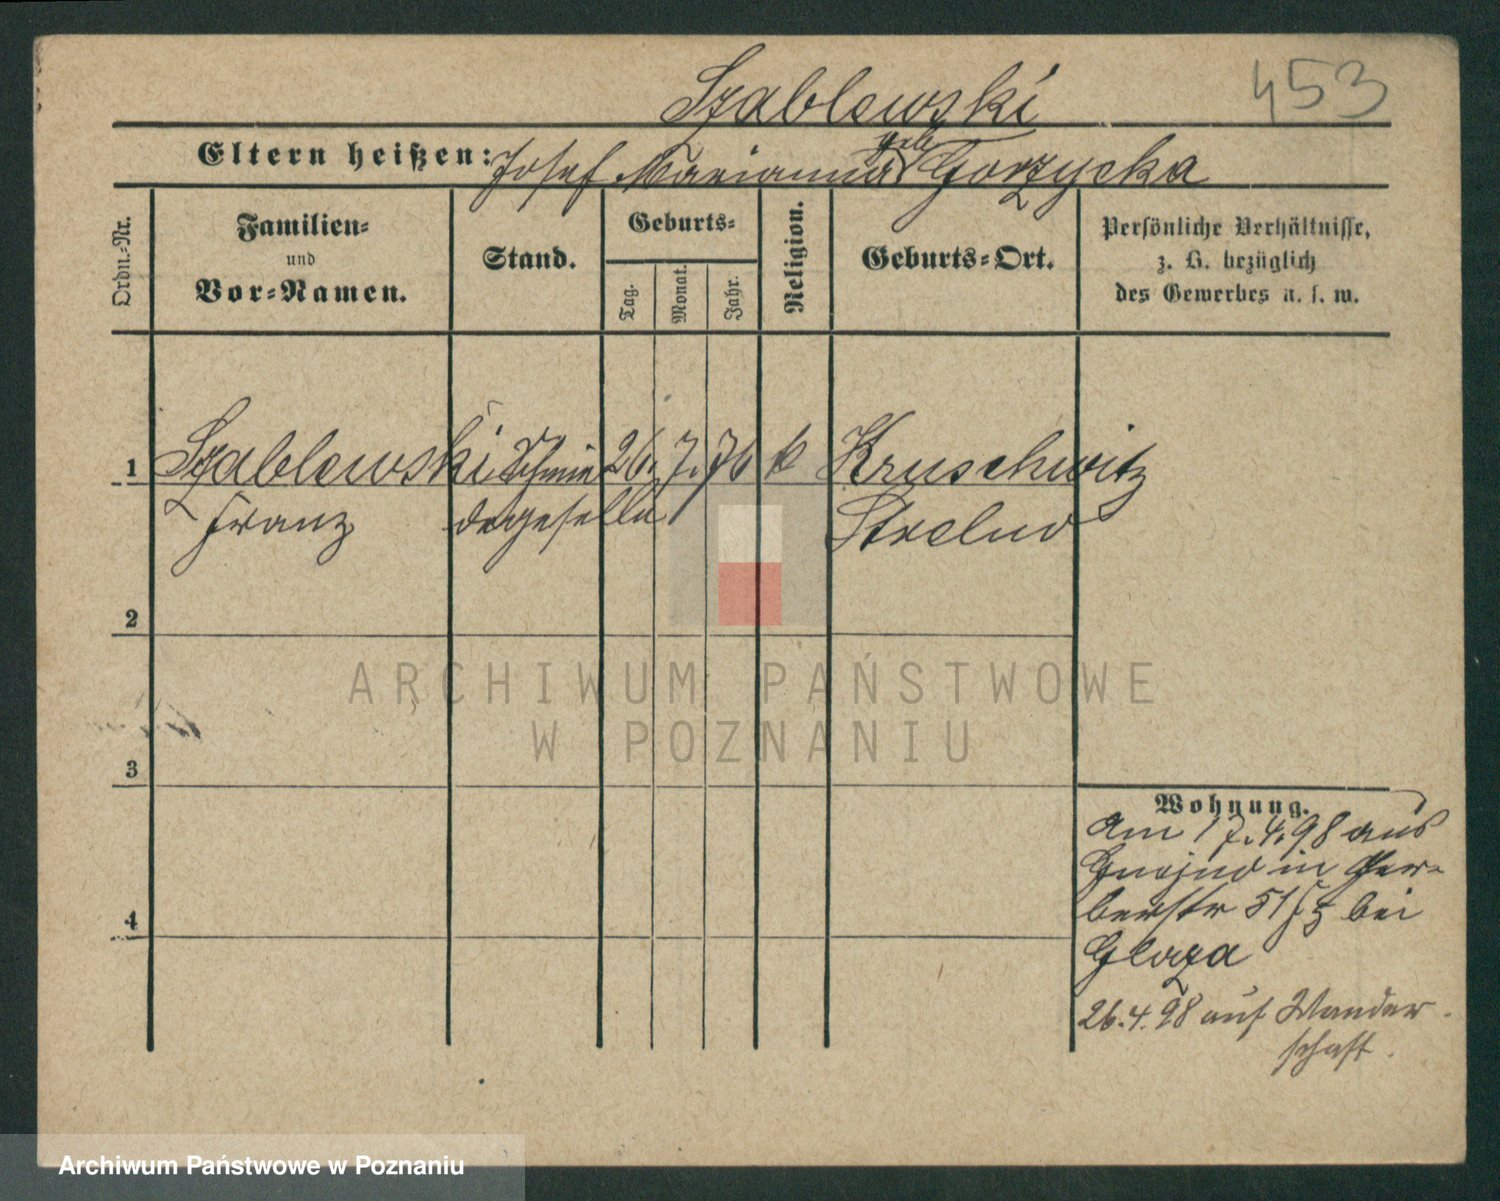 Szablewski
453
Eltern heißen: Josef Marianna geb Gorzycka
Ordn.=Nr.
Familien=
und
Vor=Namen.
Stand.
Geburts=
Tag.
Monat.
Jahr.
Religion.
Geburts=Ort.
Persönliche Verhältnisse,
z. B. bezüglich
des Gewerbes u. s. w.
1 Szablewski Schmie 26. 7. 76 k Kruschwitz
Franz degeselle Strelno
2
3
4
Wohnung.
Am 17.4.98 aus
in Ger=
berstr 51 bei
Glaza
26.4.98 auf Wander-
schaft.
ARCHIWUM PAŃSTWOWE
W POZNANIU
Archiwum Państwowe w Poznaniu